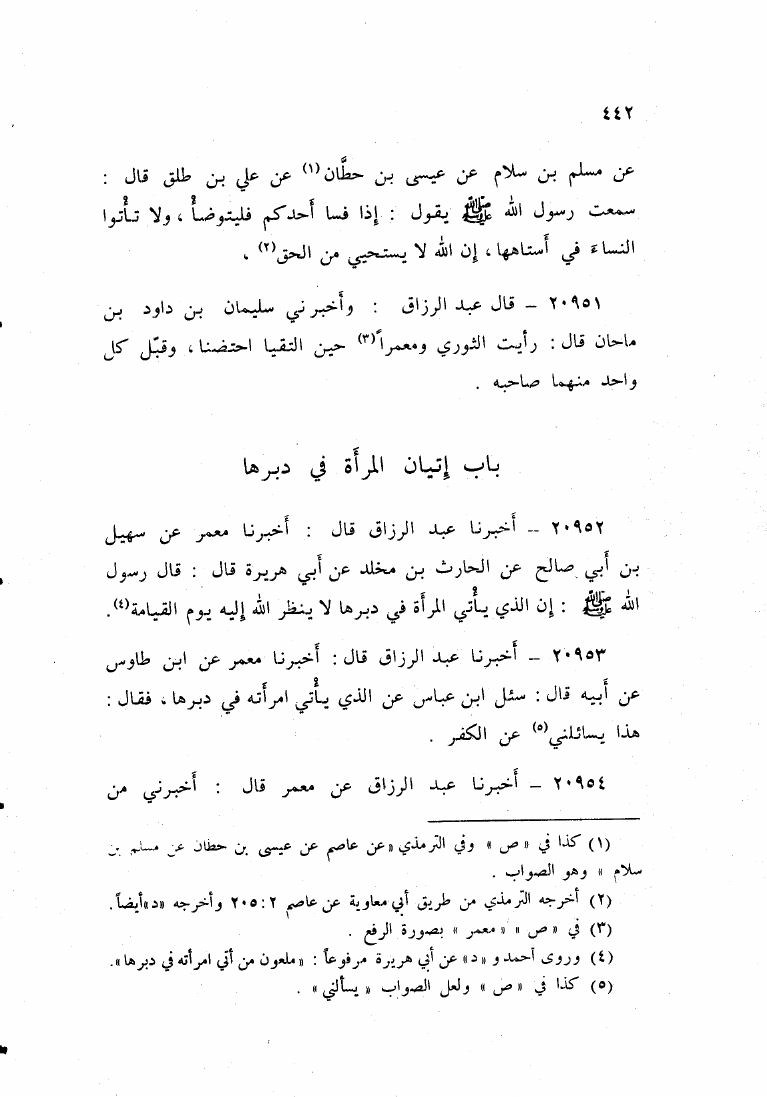 ٤٤٢
عن مسلم بن سلام عن عيسى بن حطَّان(١) عن علي بن طلق قال :
سمعت رسول الله ﷺ يقول : إذا فسا أحدكم فليتوضأْ ، ولا تـأْتوا
النساءَ في أستاهها ، إن الله لا يستحيي من الحق(٢) .
٢٠٩٥١ – قال عبد الرزاق : وأخبرني سليمان بن داود بن
ماحان قال : رأيت الثوري ومعمراً(٣) حين التقيا احتضنا ، وقبّل كل
واحد منهما صاحبه .
باب إتيان المرأة في دبرها
٢٠٩٥٢ – أخبرنا عبد الرزاق قال : أخبرنا معمر عن سهيل
بن أبي صالح عن الحارث بن مخلد عن أبي هريرة قال : قال رسول
الله ﷺ : إن الذي يـأْتي المرأة في دبرها لا ينظر الله إليه يوم القيامة(٤).
٢٠٩٥٣ – أخبرنا عبد الرزاق قال : أخبرنا معمر عن ابن طاوس
عن أبيه قال : سئل ابن عباس عن الذي يـأْتي امرأته في دبرها ، فقال :
هذا يسائلني(٥) عن الكفر .
٢٠٩٥٤ – أخبرنا عبد الرزاق عن معمر قال : أخبرني من
(١) كذا في « ص » وفي الترمذي « عن عاصم عن عيسى بن حطان عن مسلم بن
سلام » وهو الصواب .
(٢) أخرجه الترمذي من طريق أبي معاوية عن عاصم ٢ : ٢٠٥ وأخرجه «د» أيضاً.
(٣) في « ص » « معمر » بصورة الرفع .
(٤) وروى أحمد و «د» عن أبي هريرة مرفوعاً : «ملعون من أتى امرأته في دبرها».
(٥) كذا في « ص » ولعل الصواب « يسألني » .